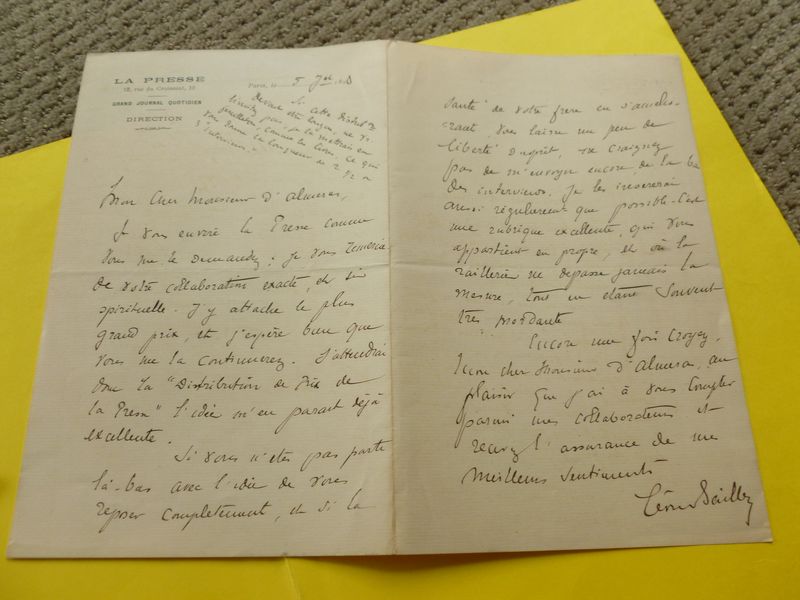 LA PRESSE
12, rue du Croissant, 12
GRAND JOURNAL QUOTIDIEN
DIRECTION
Paris, le 5
Si cette Distrib on
devait être longue, ne vs
pas, je la mettrai en
feuilleton, comme les
vous donne la longueur de 2 1/2 a
Mon cher Monsieur d'Almeras,
Je vous envoie la Presse comme
vous me le demandez ; je vous remercie
de votre collaboration exacte, et si
spirituelle. J'y attache le plus
grand prix, et j'espère bien que
vous me la continuerez. J'attendrai
donc la "Distribution de Prix de
la Presse" l'idée m'en parait déjà
excellente.
Si vous n'êtes pas parti
là-bas avec l'idée de vous
reposer complètement, et si la
santé de votre frère en s'amélio-
rant, vous laisse un peu de
liberté d'esprit, ne craignez
pas de m'envoyer encore de là-bas
des interviews. Je les insererai
aussi régulièrement que possible. C'est
une rubrique excellente, qui vous
appartient en propre, et où la
raillerie ne depasse jamais la
mesure, tout en étant souvent
très mordante
Encore une fois croyez,
mon cher Monsieur d'Almeras, au
plaisir que j'ai à vous compter
parmi mes collaborateurs et
recevez l'assurance de mes
meilleurs sentiments
Léon Bailby